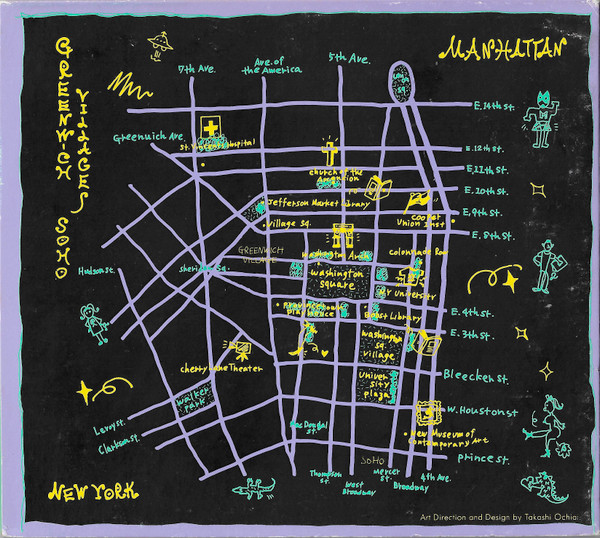 GREENWICH
VILLAGES SOHO
MANHATTAN
7th Ave.
Ave. of
the America
5th Ave.
Union
sq.
E. 14th st.
Greenwich Ave.
St. Vincent's Hospital
E. 12th st.
E. 11th st.
church of the
Ascension
E. 10th st.
Jefferson Market Library
E. 9th st.
Cooper
Union Inst
Village Sq.
E. 8th st.
GREENWICH
VILLAGE
Washington Arch
colonnade Row
Hudson st.
sheridan Sq.
washington
square
NY University
Provincetown
playhouse
Bobst Library
E. 4th st.
E. 3th st.
washington
sq.
village
cherry Lane Theater
Bleecker st.
univer
sity
plaza
walker
park
W. Houston st
Leroy st.
Clarkson st.
MacDougal
st.
New Museum of
Contemporary Art
prince st.
SOHO
Thompson
st.
West
Broadway
mercer
st.
4th Ave.
Broadway
NEW YORK
Art Direction and Design by Takashi Ochiai